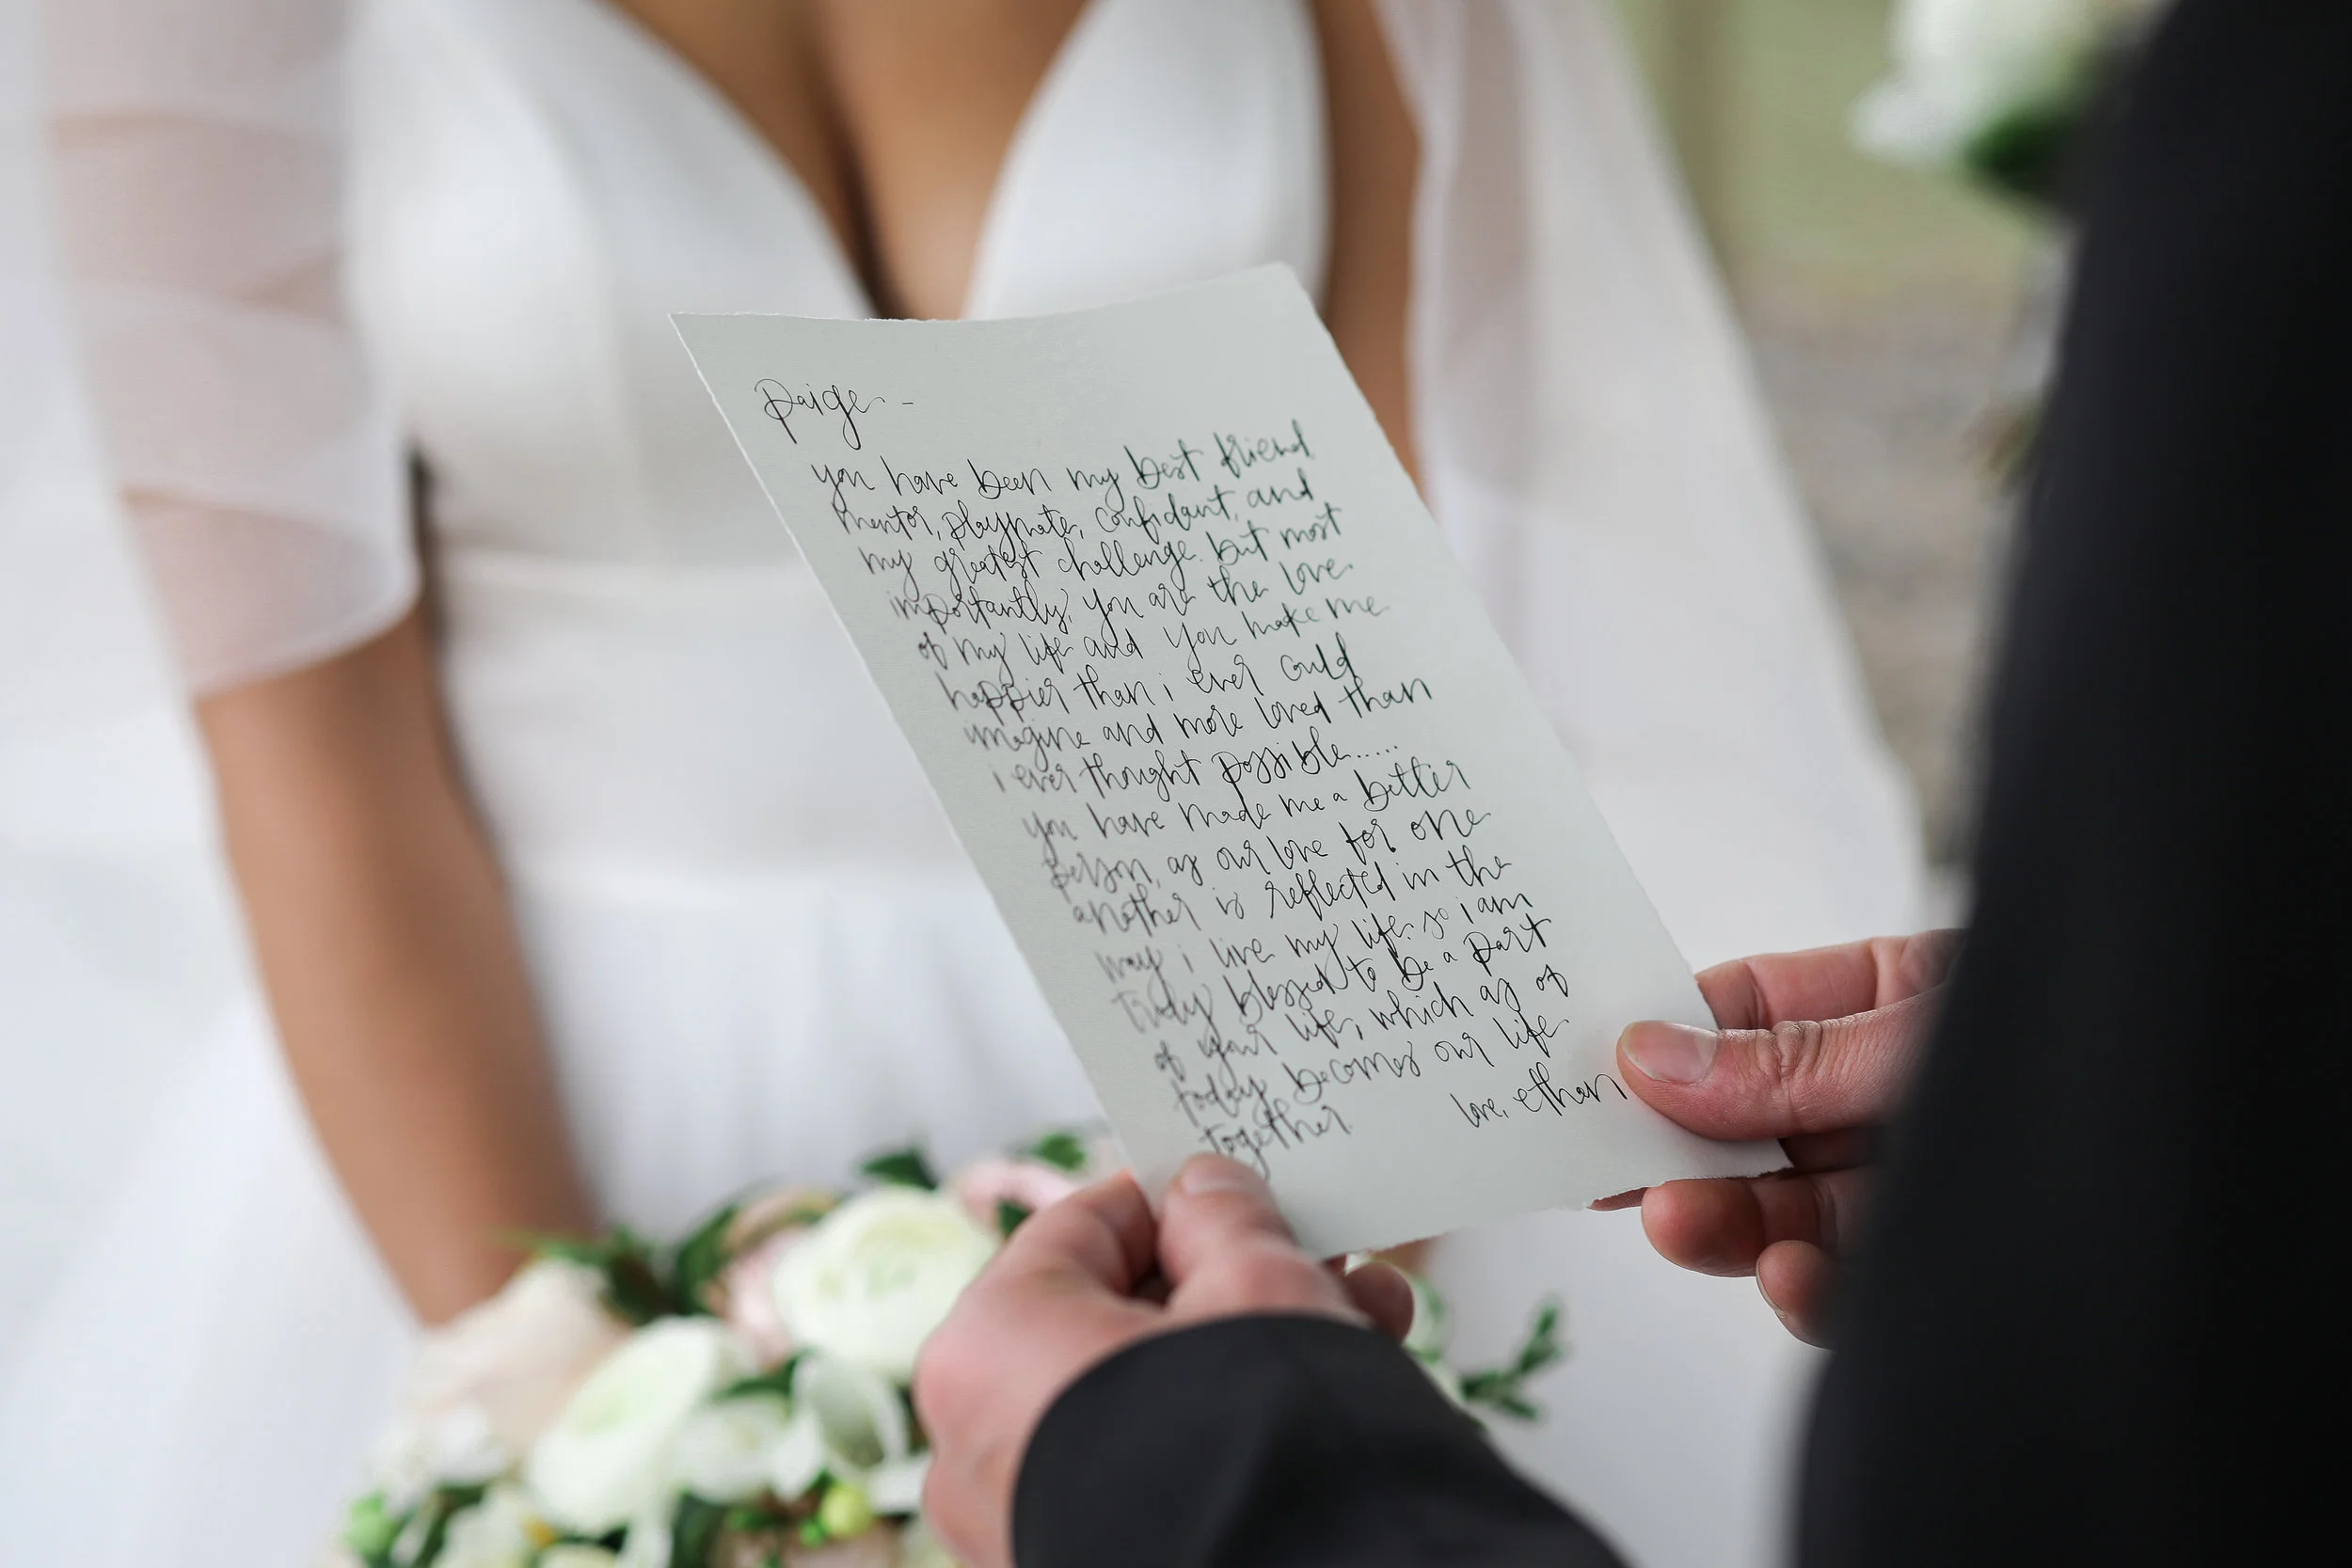 Paige -
you have been my best friend
mentor, playmate, confidant, and
my greatest challenge. but most
importantly, you are the love
of my life and you make me
happier than i ever could
imagine and more loved than
i ever thought possible......
you have made me a better
person, as our love for one
another is reflected in the
way i live my life. so i am
truly blessed to be a part
of your life, which as of
today becomes our life
together.
love, ethan